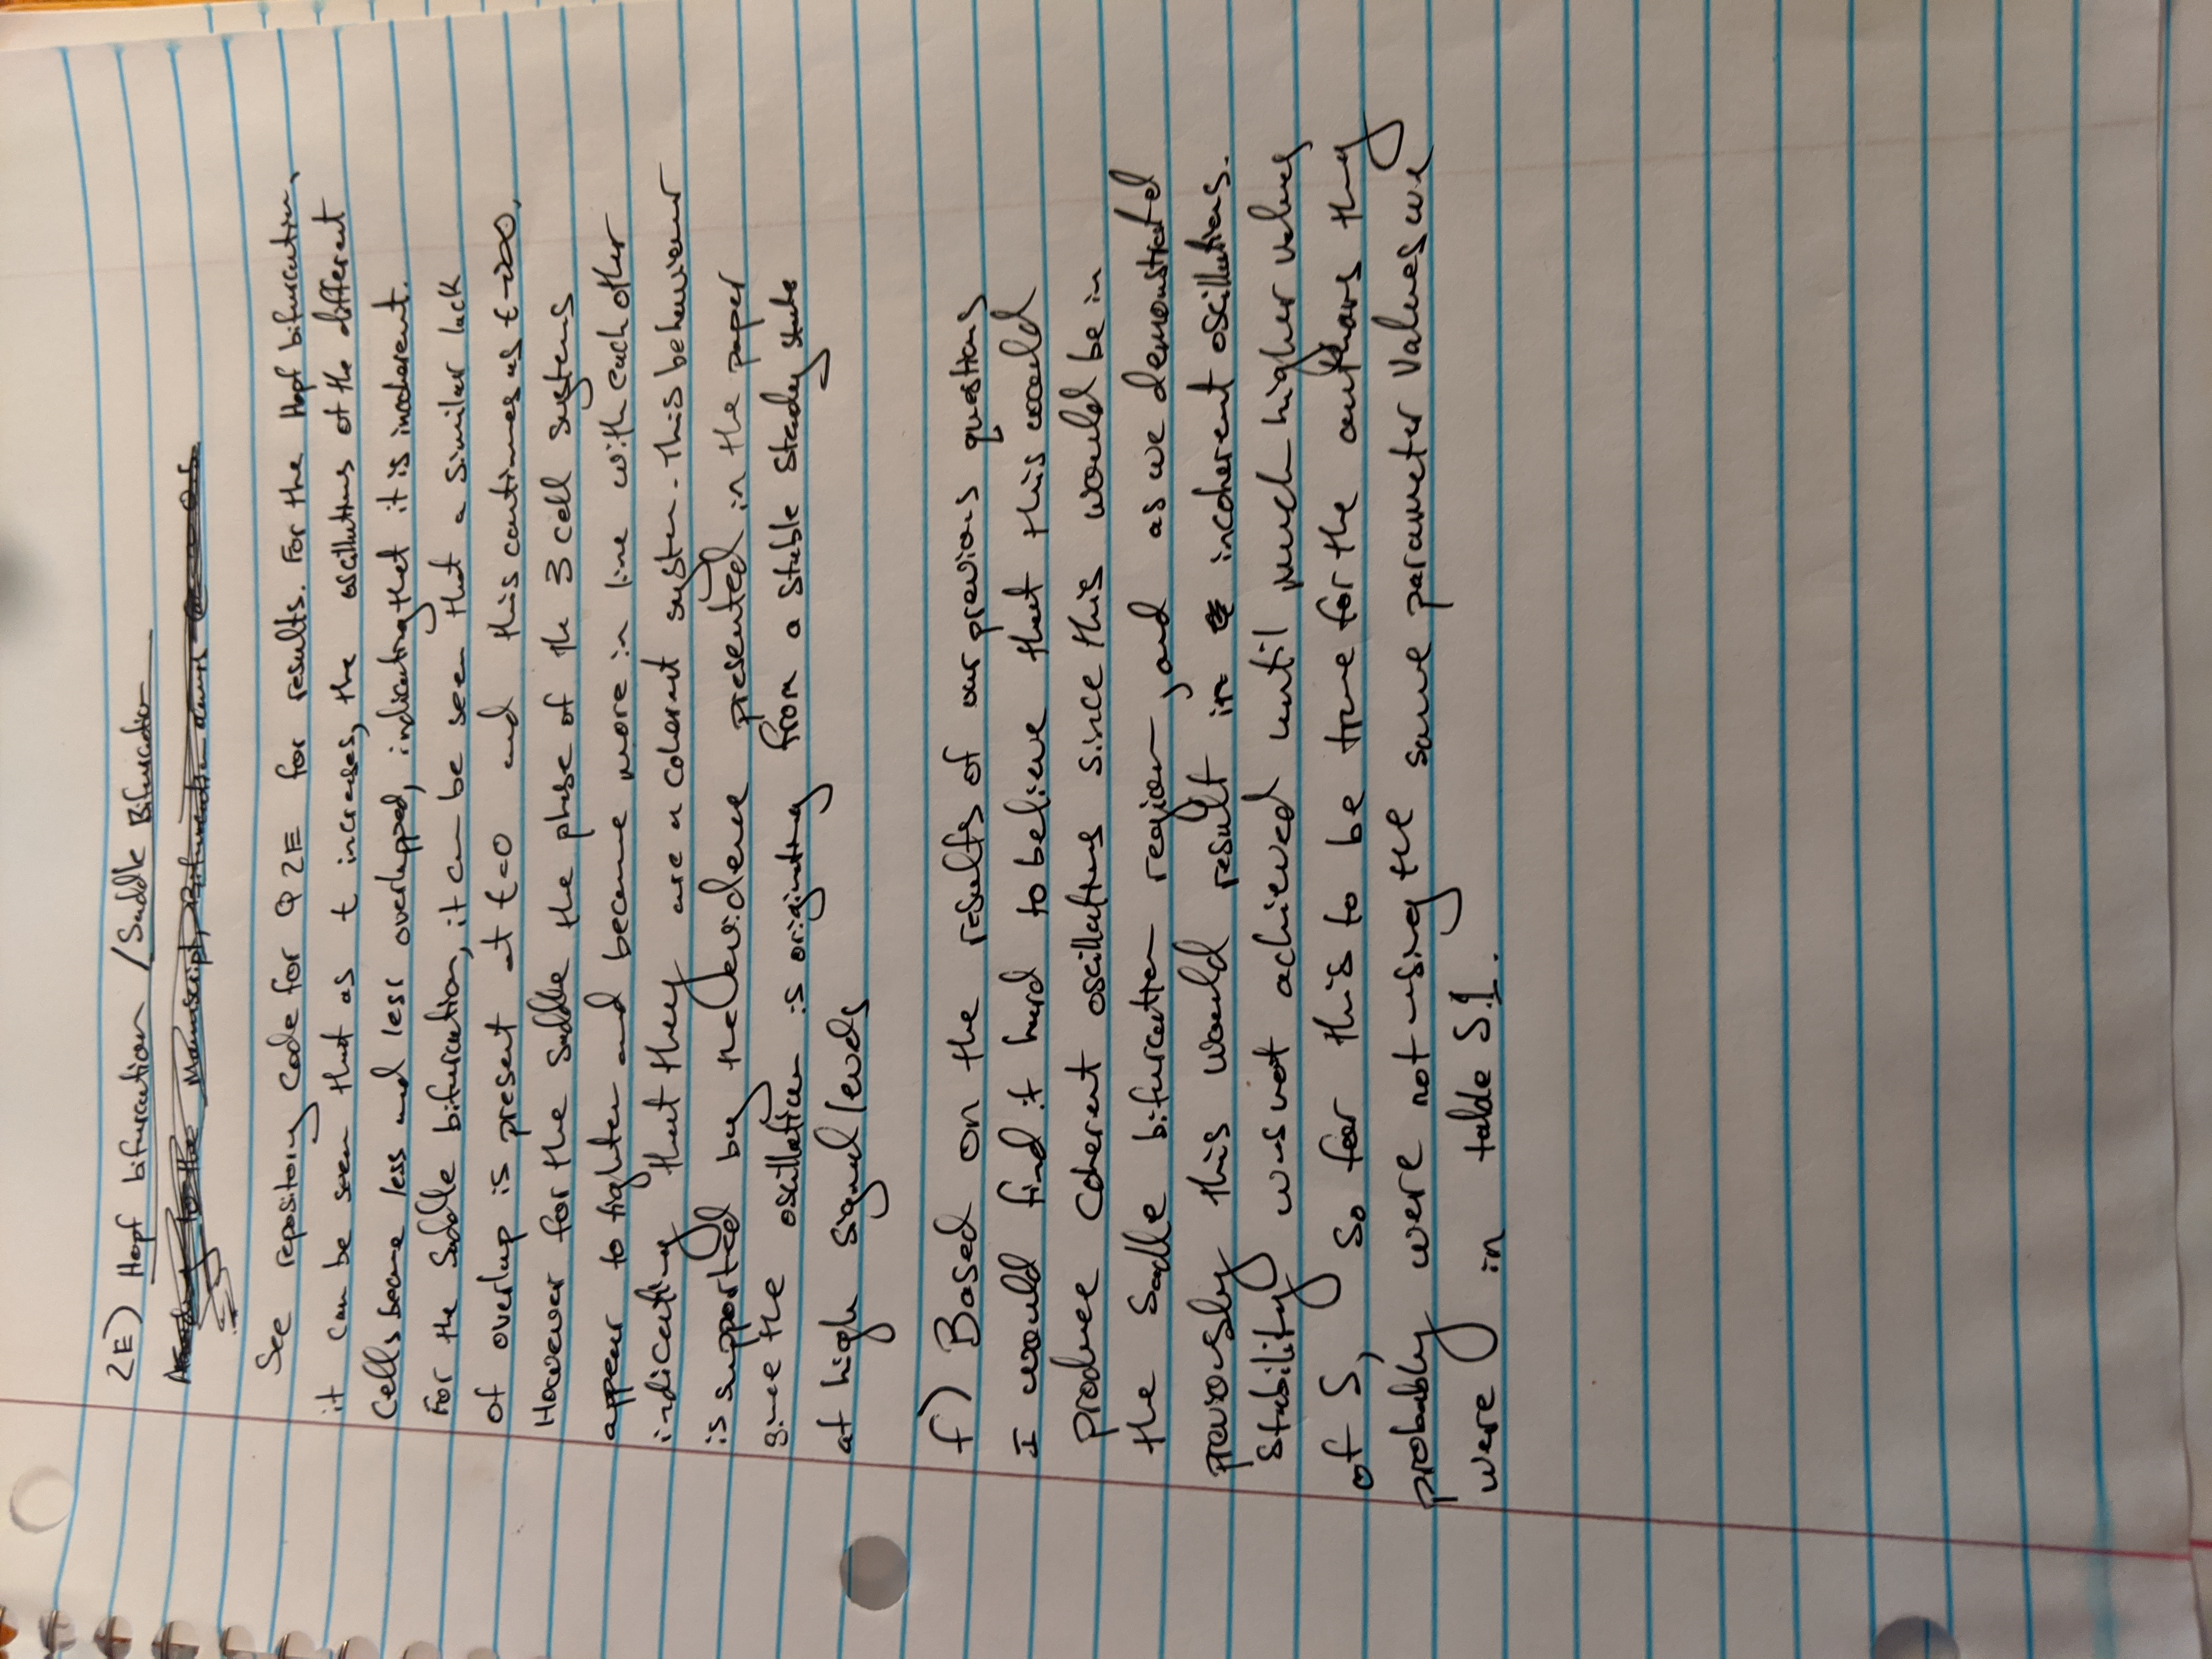 2E) Hopf bifurcation / Saddle Bifurcation
to the Manuscript, Bifurcation
See repository Code for Q 2E for results. For the Hopf bifurcation,
it can be seen that as t increases, the oscillations of the different
Cells become less and less overlapped, indicating that it is incoherent.
For the Saddle bifurcation, it can be seen that a similar lack
of overlap is present at t=0 and this continues as t→∞.
However for the saddle the phase of the 3 cell systems
appear to tighten and become more in line with each other
indicating that they are a coherent system. This behaviour
is supported by the evidence presented in the paper
since the oscillation is originating from a stable steady state
at high signal levels
f) Based on the results of our previous questions
I would find it hard to believe that this would
produce coherent oscillations since this would be in
the Sadle bifurcation region, and as we demonstrated
previously this would result in incoherent oscillations.
Stability was not achieved until much higher values
of S, so for this to be true for the authors they
probably were not using the same parameter values we
were in table S.1.